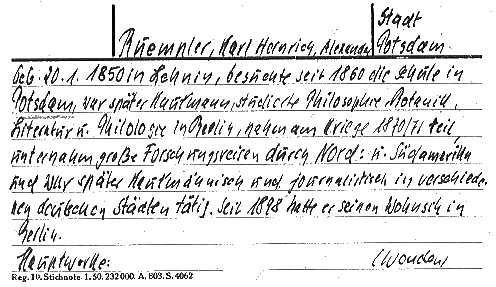 Stadt
Ruempler, Karl Heinrich, Alexander Potsdam
Geb. 20.1.1850 in Lehnin, besuchte seit 1860 die Schule in
Potsdam, war später Kaufmann, studierte Philosophie, Botanik,
Literatur u. Philologie in Berlin, nahm am Kriege 1870/71 teil
unternahm große Forschungsreisen durch Nord= u. Südamerika
und war später kaufmännisch und journalistisch in verschiede-
nen deutschen Städten tätig. Seit 1898 hatte er seinen Wohnsitz in
Berlin.
Hauptwerke: (wenden
Reg. 10. Stichnote. 1. 50. 232000. A. 803. S. 4062